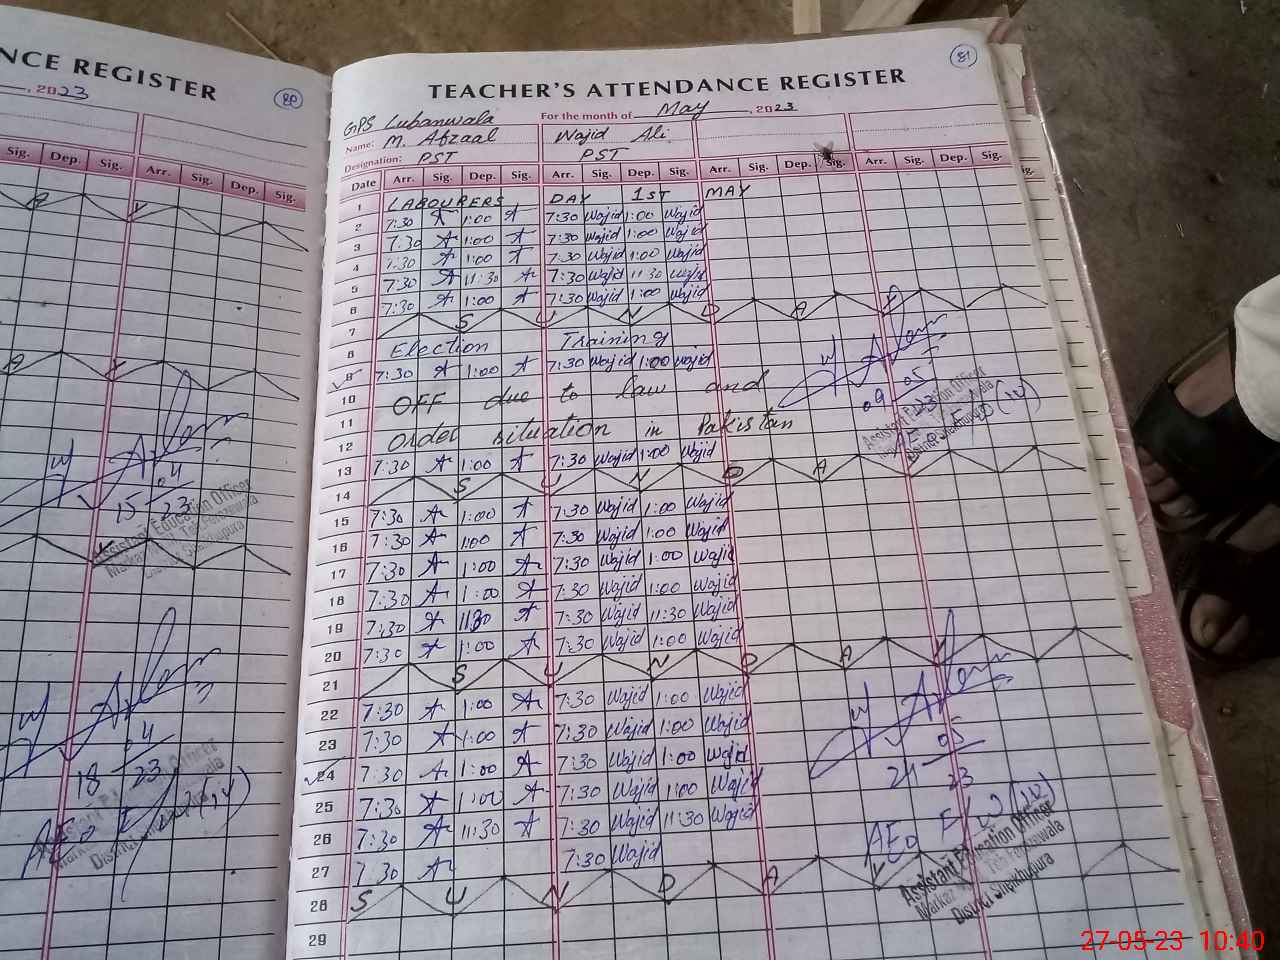 NCE REGISTER
, 2023
80
Sig. Dep. Arr. Sig. Dep. Sig.
15 04 23
Assistant Education Officer
18 04 23
81
TEACHER'S ATTENDANCE REGISTER
GPS Lubanwala For the month of May, 2023
Name: M. Afzaal Wajid Ali
Designation: PST PST
Date Arr. Sig. Dep. Sig. Arr. Sig. Dep. Sig. Arr. Sig. Dep. Sig. Arr. Sig. Dep. Sig.
1 LABOURERS DAY 1ST MAY
2 7:30 1:00 7:30 Wajid 1:00 Wajid
3 7:30 1:00 7:30 Wajid 1:00 Wajid
4 7:30 1:00 7:30 Wajid 1:00 Wajid
5 7:30 11:30 7:30 Wajid 11:30 Wajid
6 7:30 1:00 7:30 Wajid 1:00 Wajid
7 S U N D A Y
8 Election Training
9 7:30 1:00 7:30 Wajid 1:00 Wajid
10 OFF due to law and
11
12 Order situation in Pakistan
13 7:30 1:00 7:30 Wajid 1:00 Wajid
14 S U N D A Y
15 7:30 1:00 7:30 Wajid 1:00 Wajid
16 7:30 1:00 7:30 Wajid 1:00 Wajid
17 7:30 1:00 7:30 Wajid 1:00 Wajid
18 7:30 1:00 7:30 Wajid 1:00 Wajid
19 7:30 11:30 7:30 Wajid 11:30 Wajid
20 7:30 1:00 7:30 Wajid 1:00 Wajid
21 S U N D A Y
22 7:30 1:00 7:30 Wajid 1:00 Wajid
23 7:30 1:00 7:30 Wajid 1:00 Wajid
24 7:30 1:00 7:30 Wajid 1:00 Wajid
25 7:30 1:00 7:30 Wajid 1:00 Wajid
26 7:30 11:30 7:30 Wajid 11:30 Wajid
27 7:30 7:30 Wajid
28 S U N D A Y
29
09 05
Assistant Education Officer
24 05 23
AEO
Assistant Education Officer
District Sheikhupura
27-05-23 10:40